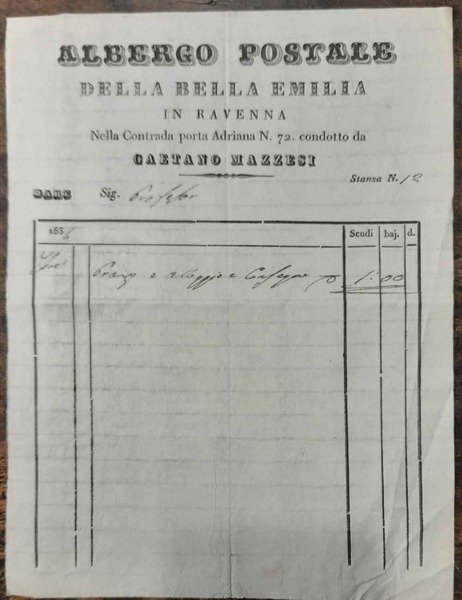 ALBERGO POSTALE
DELLA BELLA EMILIA
IN RAVENNA
Nella Contrada porta Adriana N. 72. condotto da
GAETANO MAZZESI
Stanza N. 12
DARE Sig.
185 Scudi baj. d.
Pranzo e alloggio e 1:00